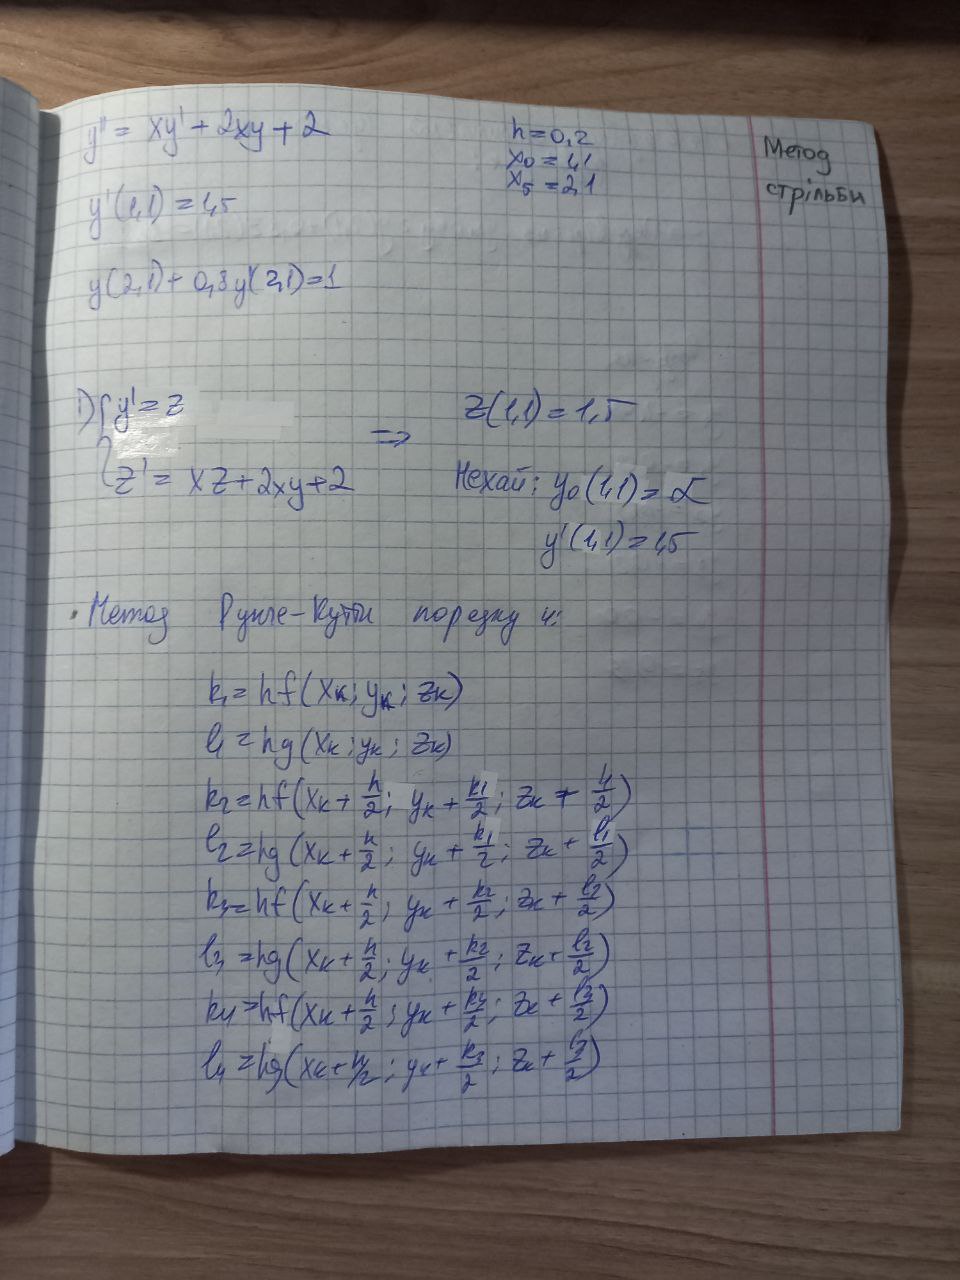 y'' = xy' + 2xy + 2
h = 0,2
x₀ = 1,1
x₅ = 2,1
Метод
стрільби
y'(1,1) = 1,5
y(2,1) + 0,8y'(2,1) = 1
1) { y' = z
z' = xz + 2xy + 2
⇒
z(1,1) = 1,5
Нехай: y₀(1,1) = α
y'(1,1) = 1,5
· Метод Рунге-Кутти порядку 4:
k₁ = hf(xₖ; yₖ; zₖ)
l₁ = hg(xₖ; yₖ; zₖ)
k₂ = hf(xₖ + h/2; yₖ + k₁/2; zₖ + l₁/2)
l₂ = hg(xₖ + h/2; yₖ + k₁/2; zₖ + l₁/2)
k₃ = hf(xₖ + h/2; yₖ + k₂/2; zₖ + l₂/2)
l₃ = hg(xₖ + h/2; yₖ + k₂/2; zₖ + l₂/2)
k₄ = hf(xₖ + h/2; yₖ + k₃/2; zₖ + l₃/2)
l₄ = hg(xₖ + h/2; yₖ + k₃/2; zₖ + l₃/2)